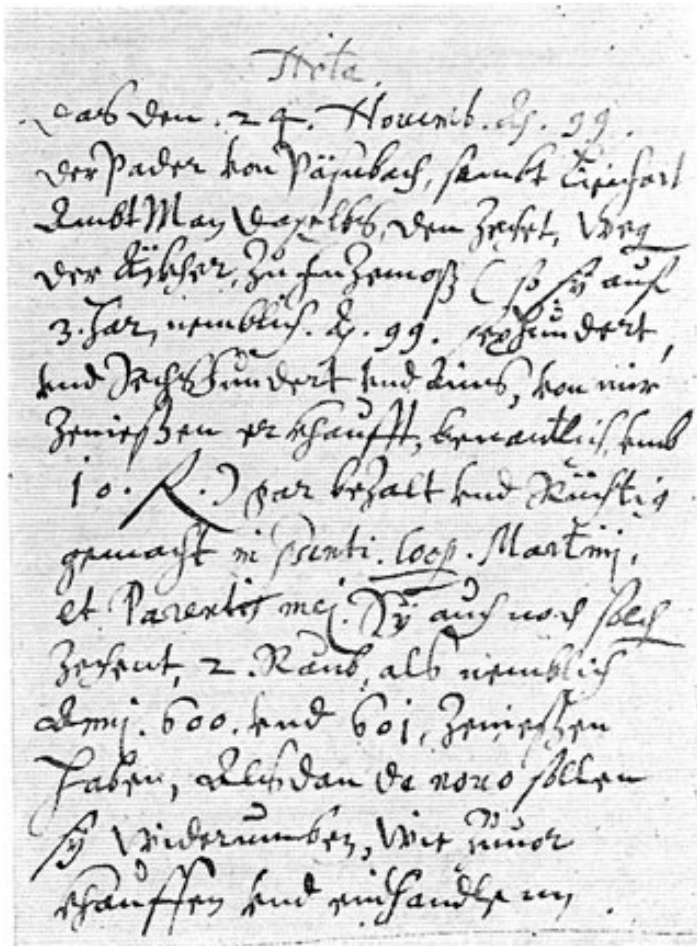 Nota
das den . 24 . Nouemb. Ao. 99 .
der Pader von Päsnbach, sambt
AmbtMan daselbs, den Zehet, Weg
der Äkher, zu (so sÿ auf
3. Jar, nemblich. Ao. 99. sexhundert,
vnd Sechshundert vnd Ains, von mir
Zeniessen erkhaufft, benantlich vmb
10. R.) par bezalt vnd Richtig
gemacht in psenti. Coop. Martinj,
et Parentis mej. Sÿ auch noch solch
Zehent, 2. Raub, als nemblich
Annj. 600. vnd 601, Zeniessen
haben, Alsdan de nouo sollen
sÿ widerumben, wie Zuuor
khauffen vnd einhandlenn .